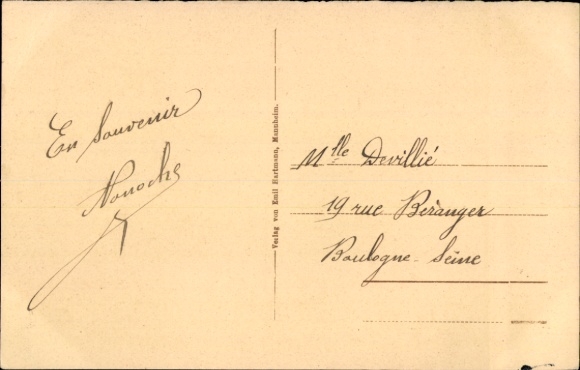 En Souvenir
Nonoche
Verlag von Emil Hartmann, Mannheim.
Mlle Devillié
19 rue Béranger
Boulogne-Seine